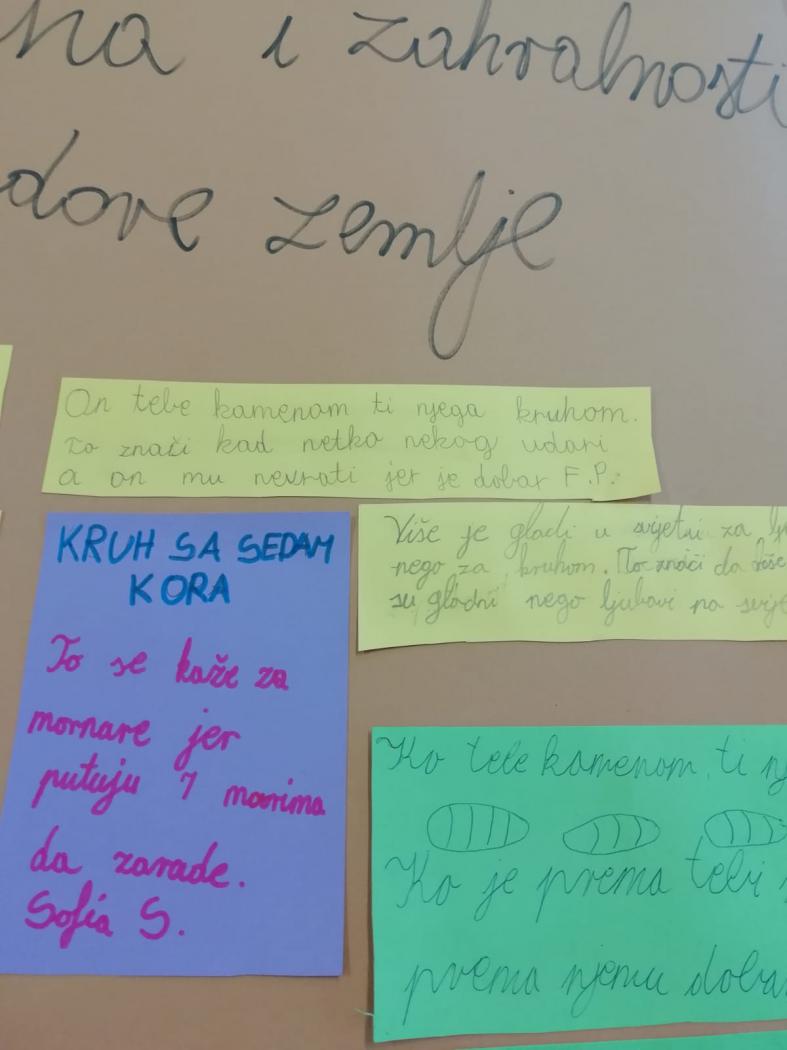 na i zahvalnosti
dove zemlje
On tebe kamenom ti njega kruhom.
To znači kad netko nekog udari
a on mu nevrati jer je dobar F.P.
KRUH SA SEDAM
KORA
To se kaže za
mornare jer
putuju 7 morima
da zarade.
Sofia S.
Više je gladi u svijetu za
nego za kruhom. To znači da više
su gladni nego ljubavi na
Ko tebe kamenom, ti
Ko je prema tebi
prema njemu dobar